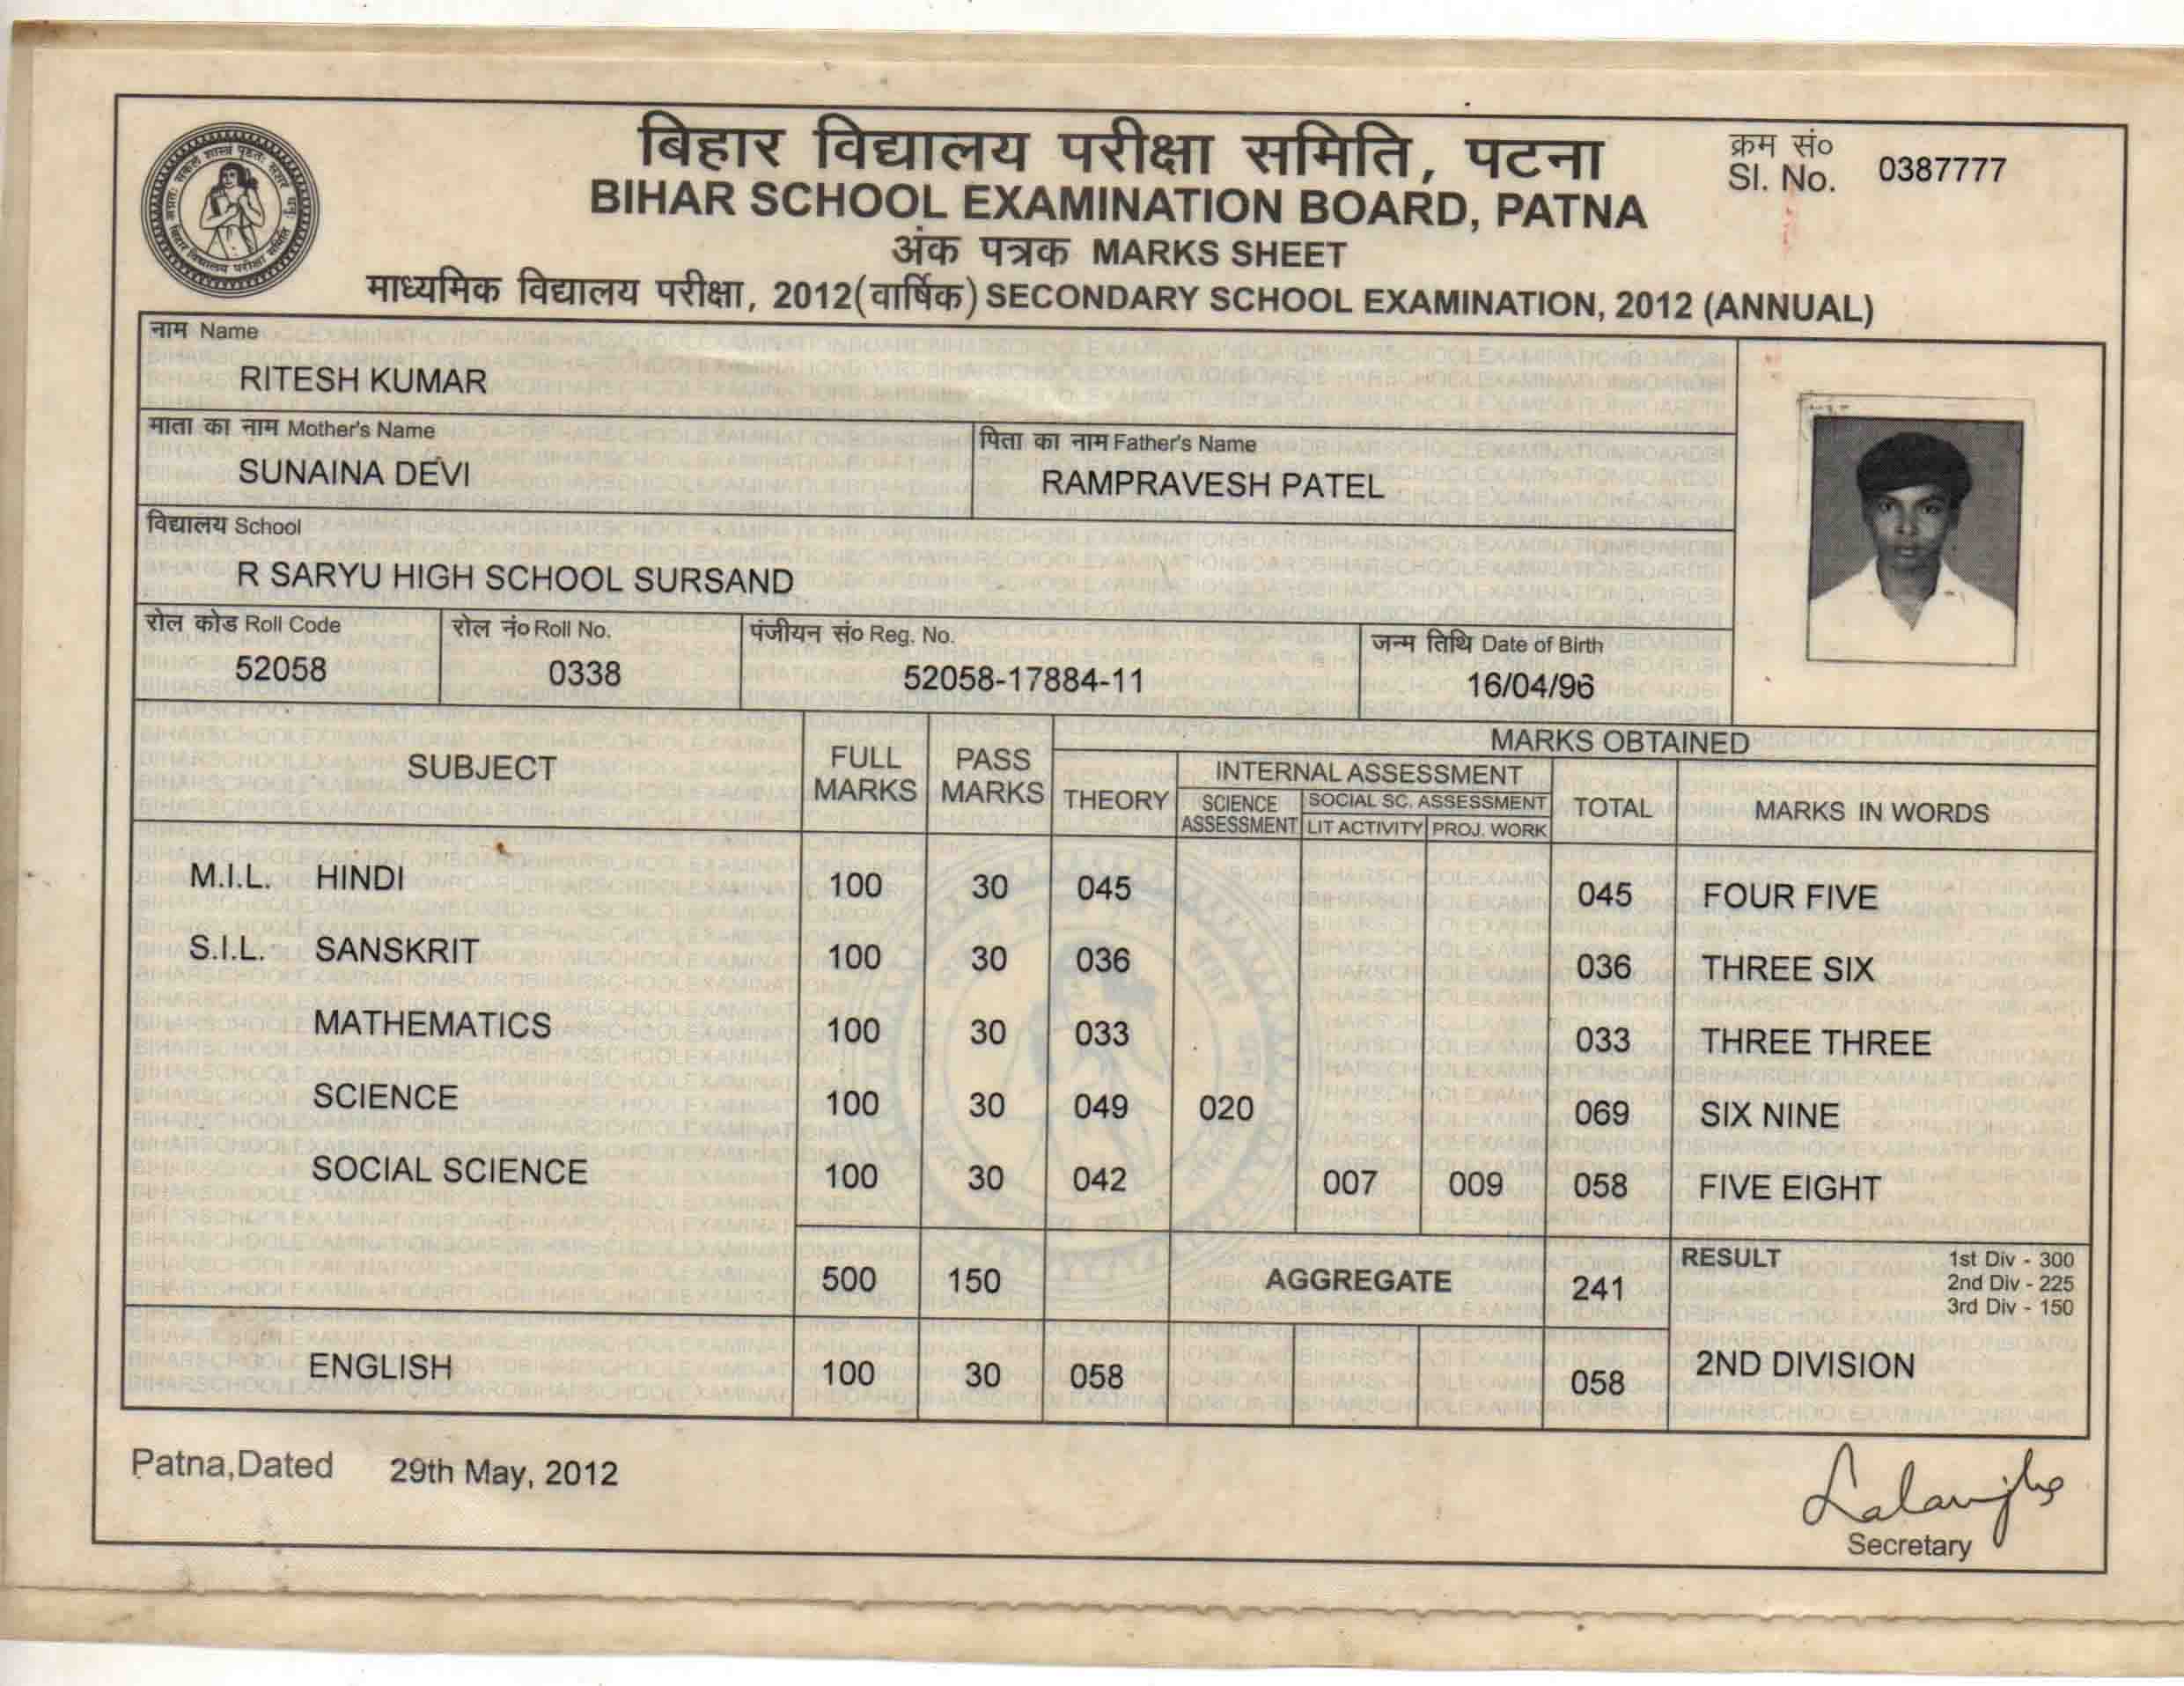 बिहार विद्यालय परीक्षा समिति, पटना
क्रम सं०
Sl. No. 0387777
BIHAR SCHOOL EXAMINATION BOARD, PATNA
अंक पत्रक MARKS SHEET
माध्यमिक विद्यालय परीक्षा, 2012(वार्षिक) SECONDARY SCHOOL EXAMINATION, 2012 (ANNUAL)
नाम Name
RITESH KUMAR
माता का नाम Mother's Name
SUNAINA DEVI
पिता का नाम Father's Name
RAMPRAVESH PATEL
विद्यालय School
R SARYU HIGH SCHOOL SURSAND
रोल कोड Roll Code रोल नं० Roll No. पंजीयन सं० Reg. No. जन्म तिथि Date of Birth
52058 0338 52058-17884-11 16/04/96
MARKS OBTAINED
SUBJECT FULL MARKS PASS MARKS THEORY INTERNAL ASSESSMENT TOTAL MARKS IN WORDS
SCIENCE ASSESSMENT SOCIAL SC. ASSESSMENT
LIT ACTIVITY PROJ. WORK
M.I.L. HINDI 100 30 045 045 FOUR FIVE
S.I.L. SANSKRIT 100 30 036 036 THREE SIX
MATHEMATICS 100 30 033 033 THREE THREE
SCIENCE 100 30 049 020 069 SIX NINE
SOCIAL SCIENCE 100 30 042 007 009 058 FIVE EIGHT
500 150 AGGREGATE 241 RESULT
1st Div - 300
2nd Div - 225
3rd Div - 150
ENGLISH 100 30 058 058 2ND DIVISION
Patna,Dated 29th May, 2012
Secretary